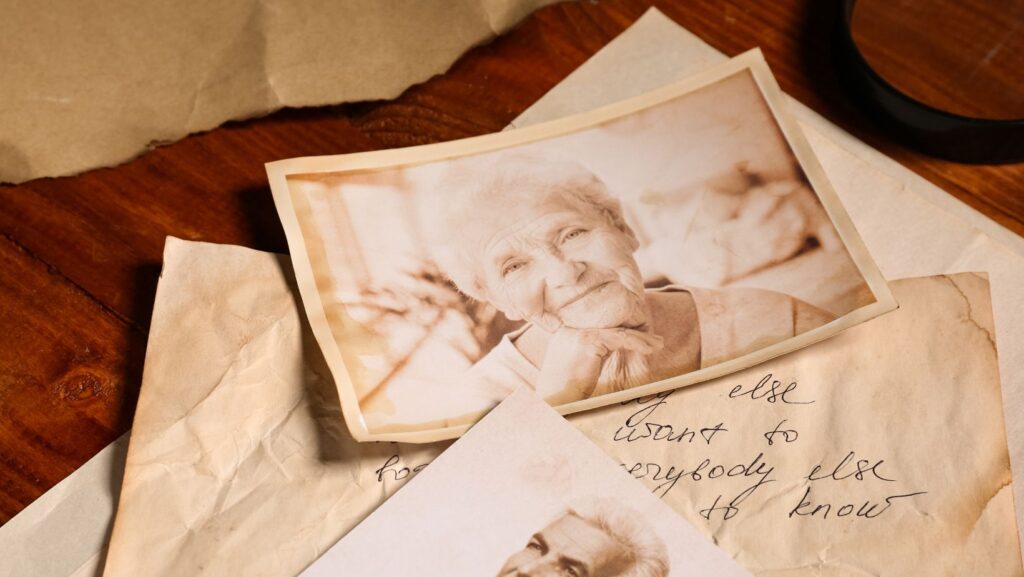 else
want to
everybody else
to know